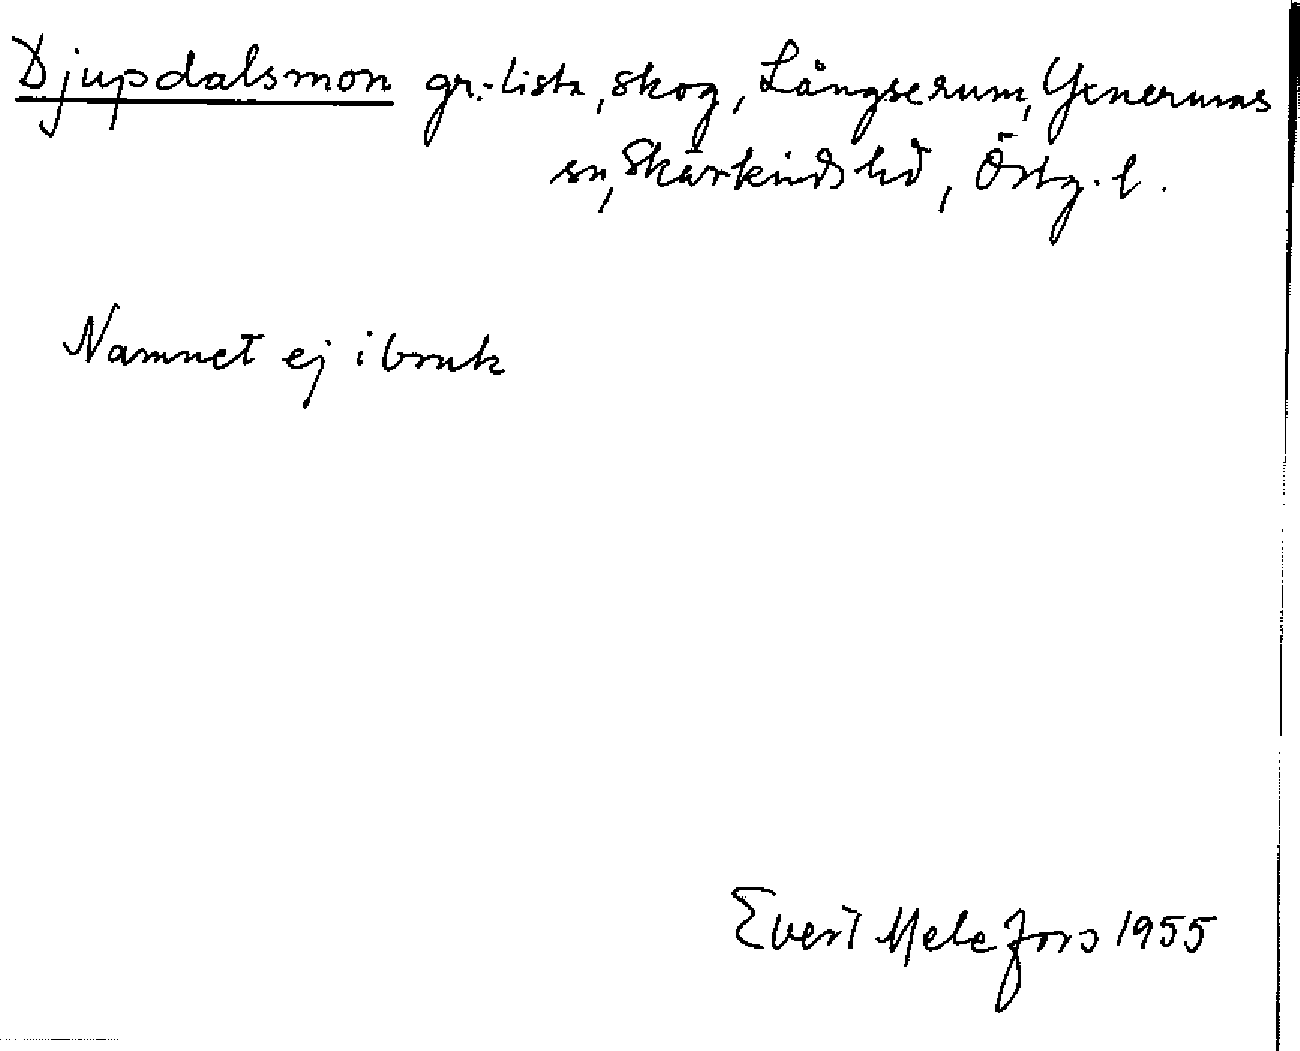 Djupdalsmon gr.-lista, skog, Långserum, Yxnerums
sn, Skärkinds hd, Östg. l.
Namnet ej i bruk
Evert Melefors 1955